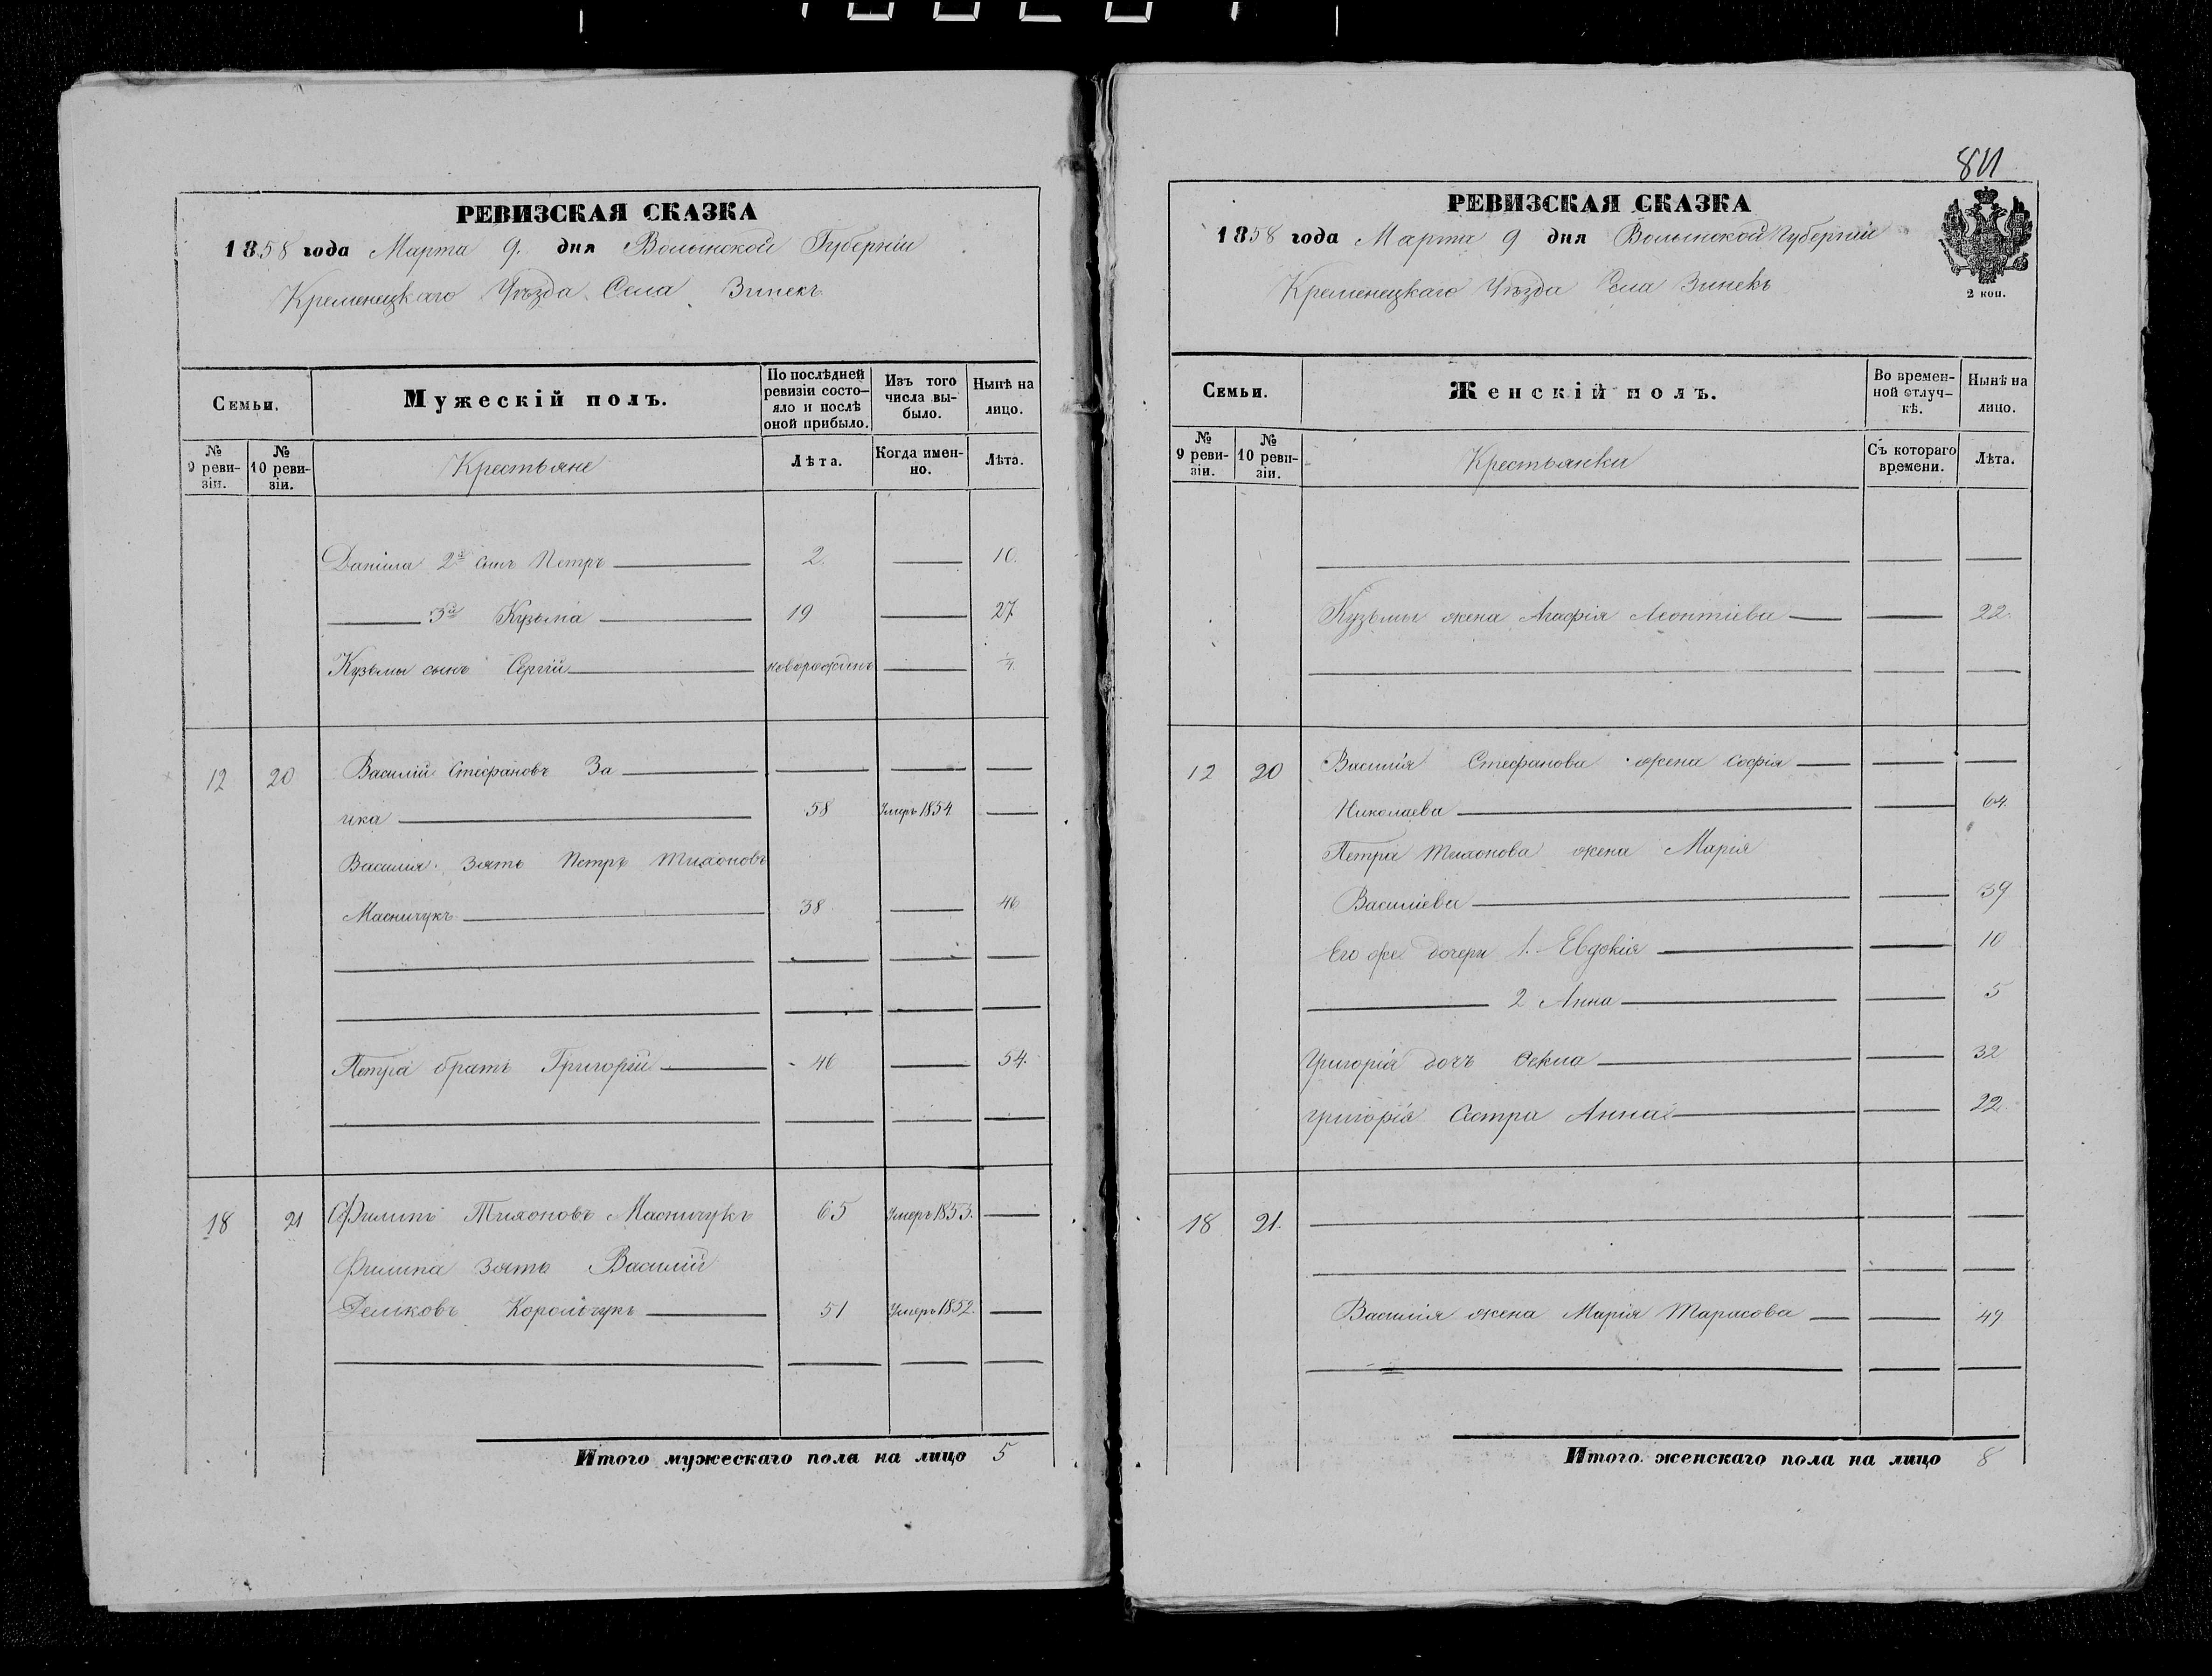 РЕВИЗСКАЯ СКАЗКА
1858 года Марта 9. дня Волынской Губерніи
Кременецкаго Уѣзда Села Зинекъ
Семьи.
Мужескій полъ.
По послѣдней ревизіи состо-
яло и послѣ
оной прибыло.
Изъ того
числа вы-
было.
Нынѣ на
лицо.
№
9 реви-
зіи.
№
10 реви-
зіи.
Крестьяне
Лѣта.
Когда имен-
но.
Лѣта.
Данила 2й сынъ Петръ 2. 10.
3й Кузьма 19 27
Кузьмы сынъ Сергій новорожденъ
12 20 Василій Стефановъ За
ика 58 Умеръ 1854
Василия зять Петръ Тихоновъ
Масничукъ 38 46
Петра братъ Григорій 46 54.
18 21 Филипъ Тихоновъ Масничукъ 65 Умеръ 1853.
Филипа зять Василій
Демковъ Корольчукъ 51 Умеръ 1852.
Итого мужескаго пола на лицо 5
РЕВИЗСКАЯ СКАЗКА
1858 года Марта 9 дня Волынской Губерніи
Кременецкаго Уѣзда Села Зинекъ
2 коп.
Семьи.
Женскій полъ.
Во времен-
ной отлуч-
кѣ.
Нынѣ на
лицо.
№
9 реви-
зіи.
№
10 реви-
зіи.
Крестьянки
Съ котораго
времени.
Лѣта.
Кузьмы жена Агафія Леонтіева 22.
12 20 Василія Стефанова жена Софія
Николаева 64.
Петра Тихонова жена Марія
Василіева 39
Его же дочери 1. Евдокія 10
2 Анна 5
Григорія дочъ Фекла 32
Григорія Сестра Анна 22.
18 21.
Василія жена Марія Тарасова 49
Итого женскаго пола на лицо 8